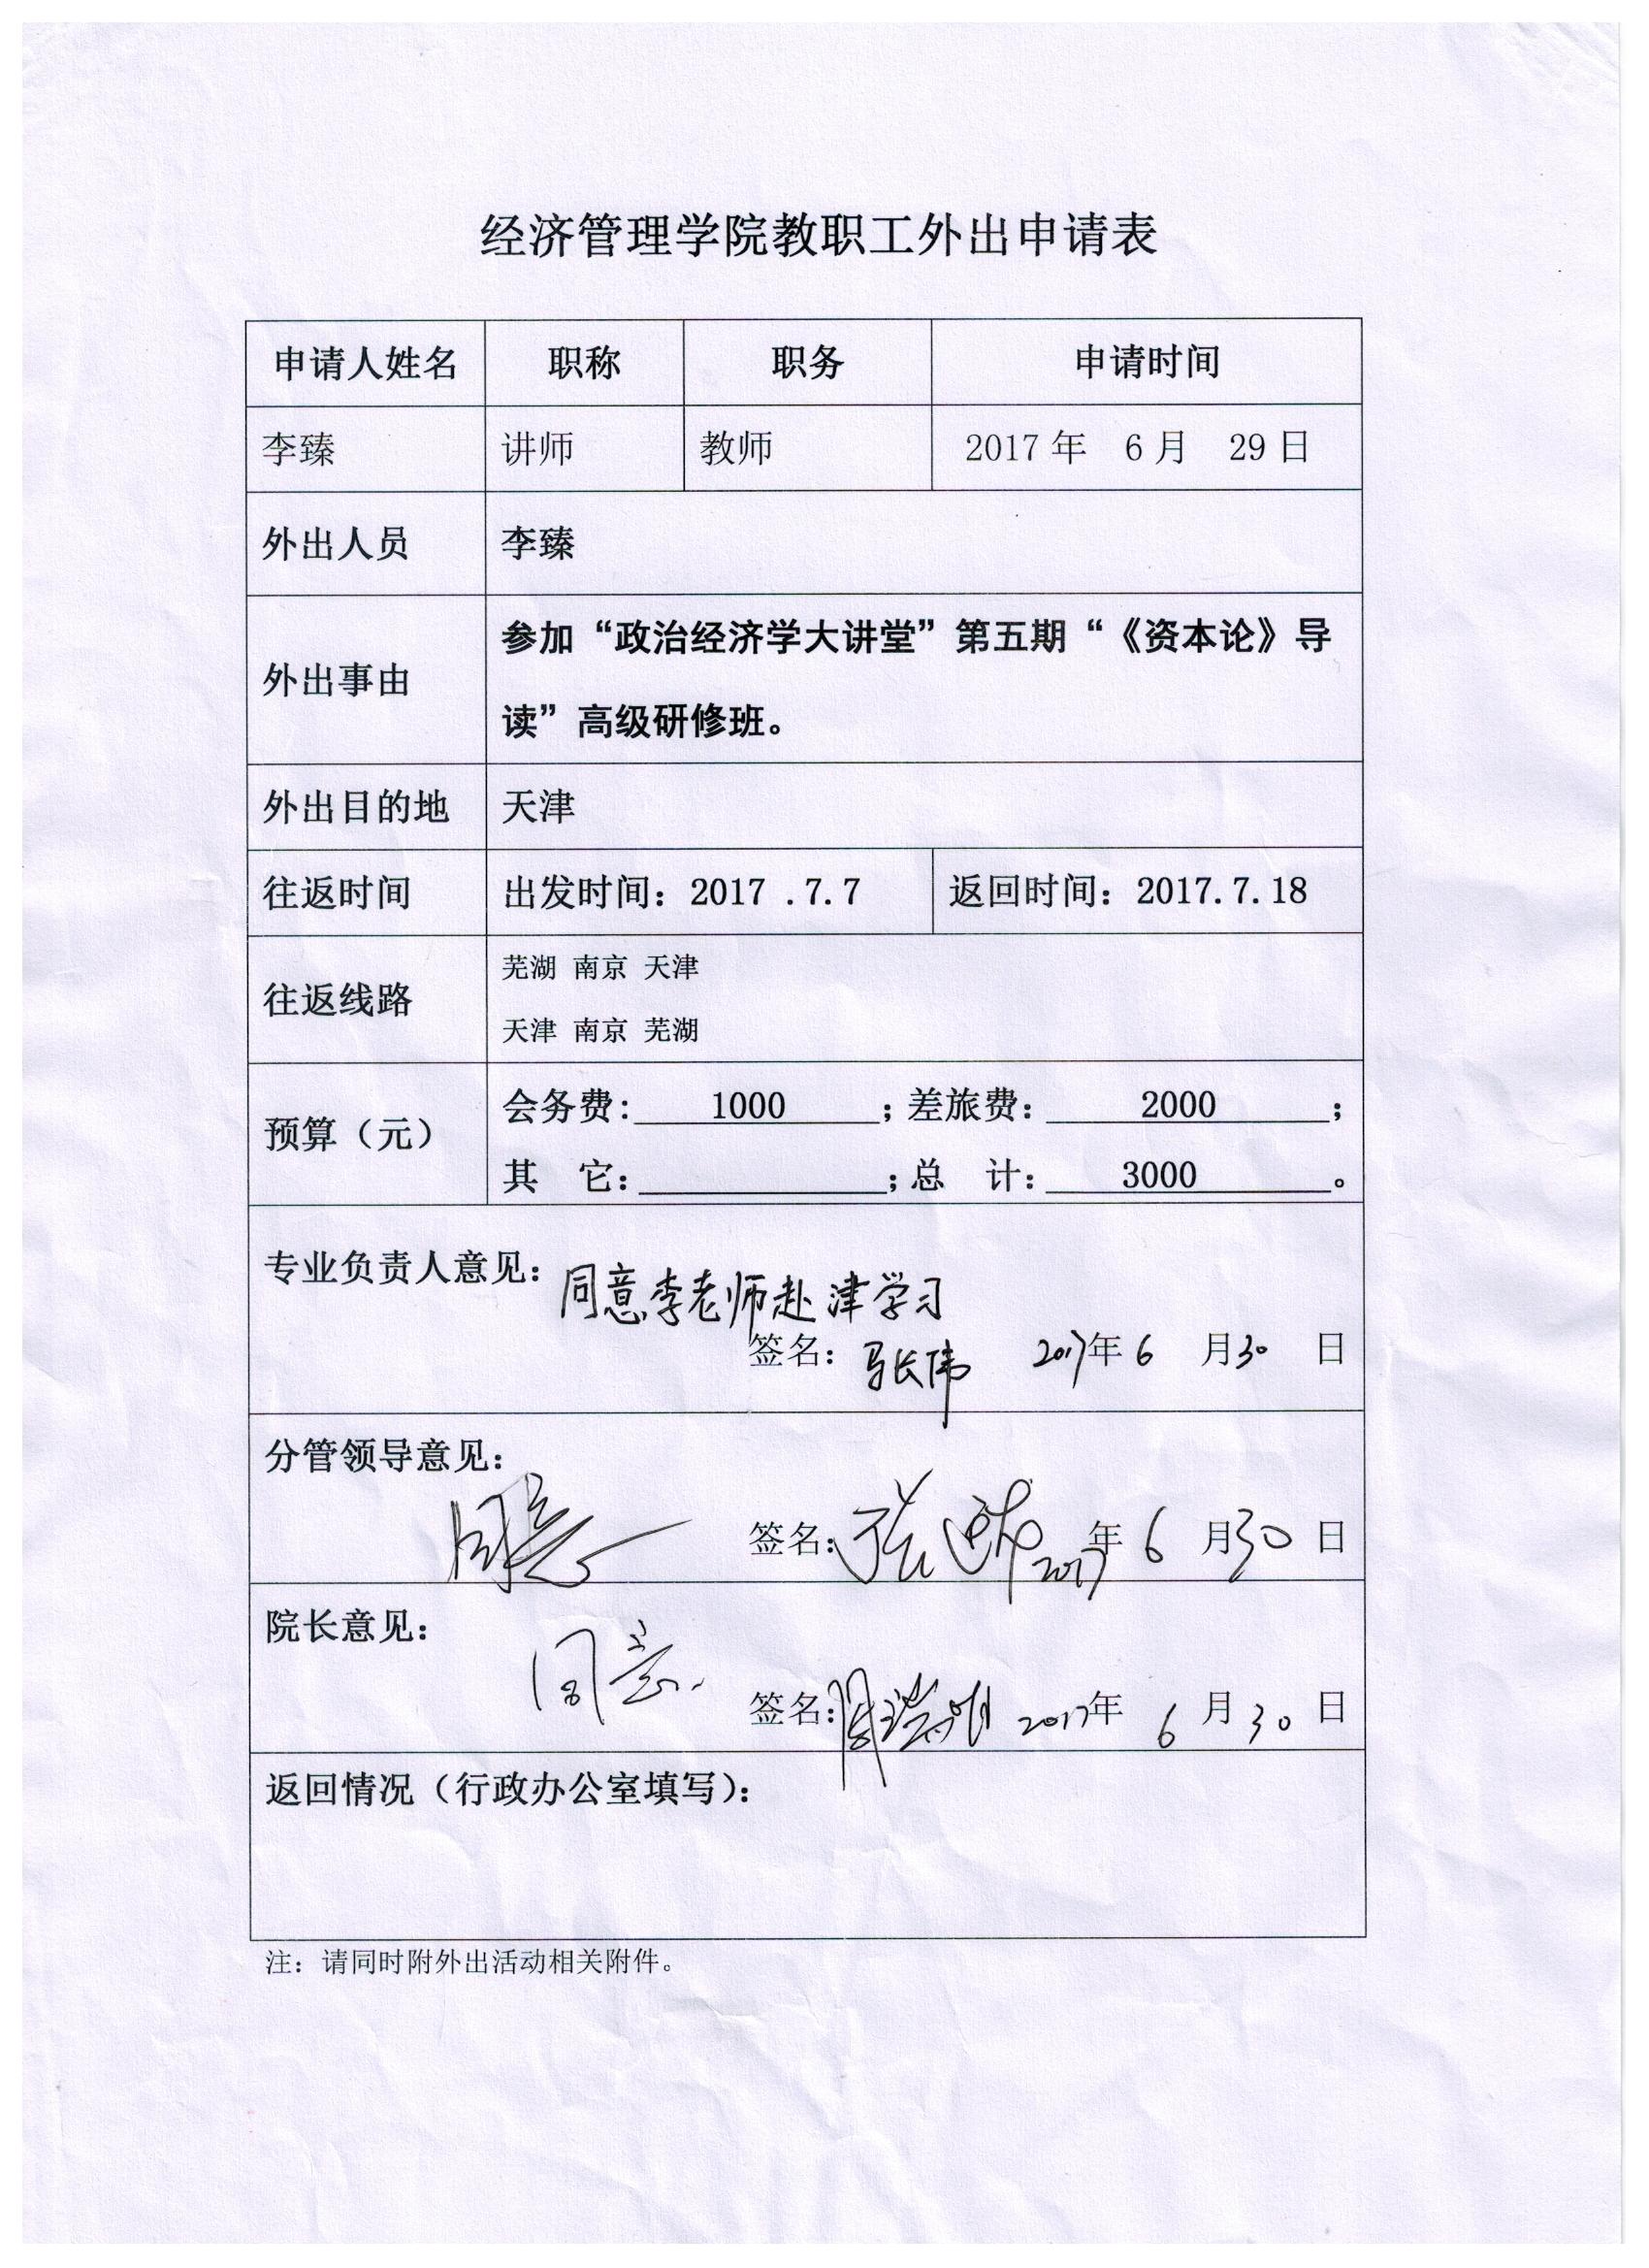 经济管理学院教职工外出申请表
申请人姓名 职称 职务 申请时间
李臻 讲师 教师 2017 年 6 月 29 日
外出人员 李臻
外出事由 参加“政治经济学大讲堂”第五期“《资本论》导
读”高级研修班。
外出目的地 天津
往返时间 出发时间：2017 .7.7 返回时间：2017.7.18
往返线路 芜湖 南京 天津
天津 南京 芜湖
预算（元） 会务费：1000；差旅费：2000；
其 它：；总 计：3000。
专业负责人意见：同意李老师赴津学习
签名：马长伟 2017年 6 月 30 日
分管领导意见：
同意 签名： 2017年 6 月 30 日
院长意见：
同意 签名： 2017年 6 月 30 日
返回情况（行政办公室填写）：
注：请同时附外出活动相关附件。